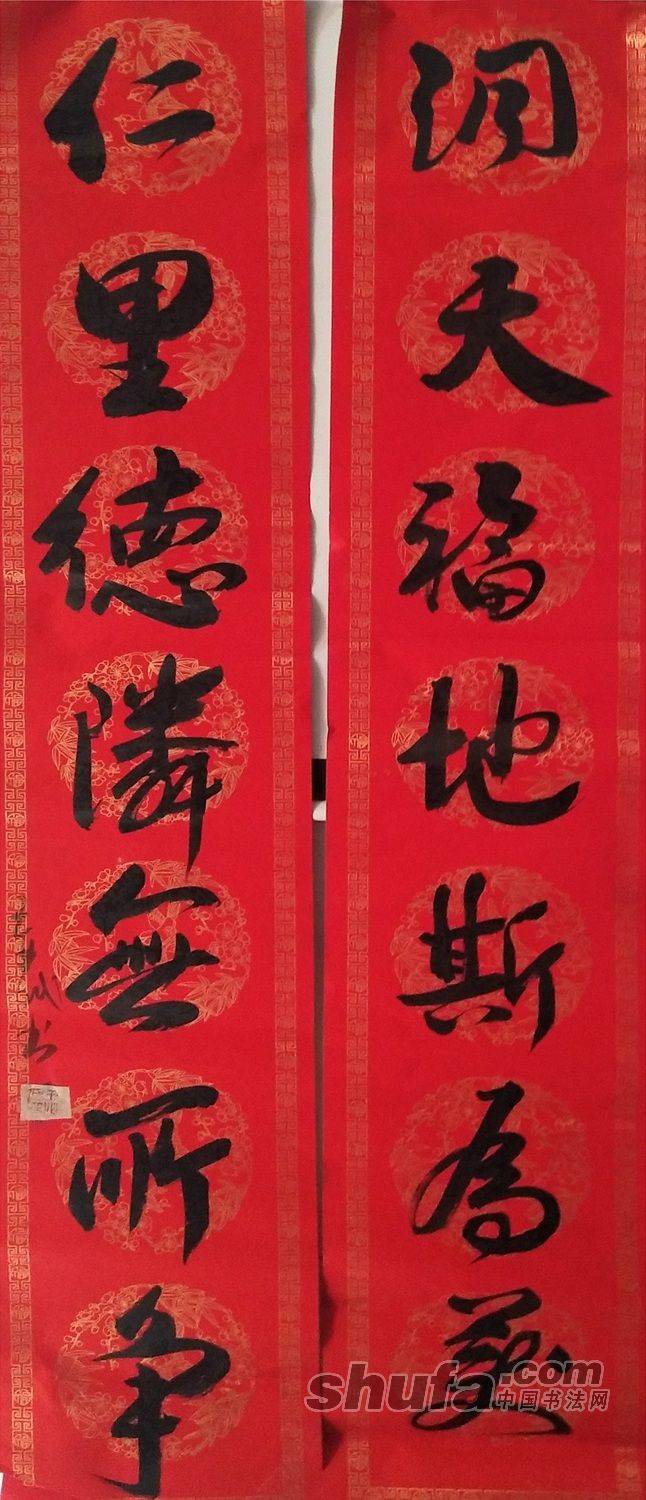 洞天福地斯為美
仁里德隣無所争
书
shufa.com
中国书法网